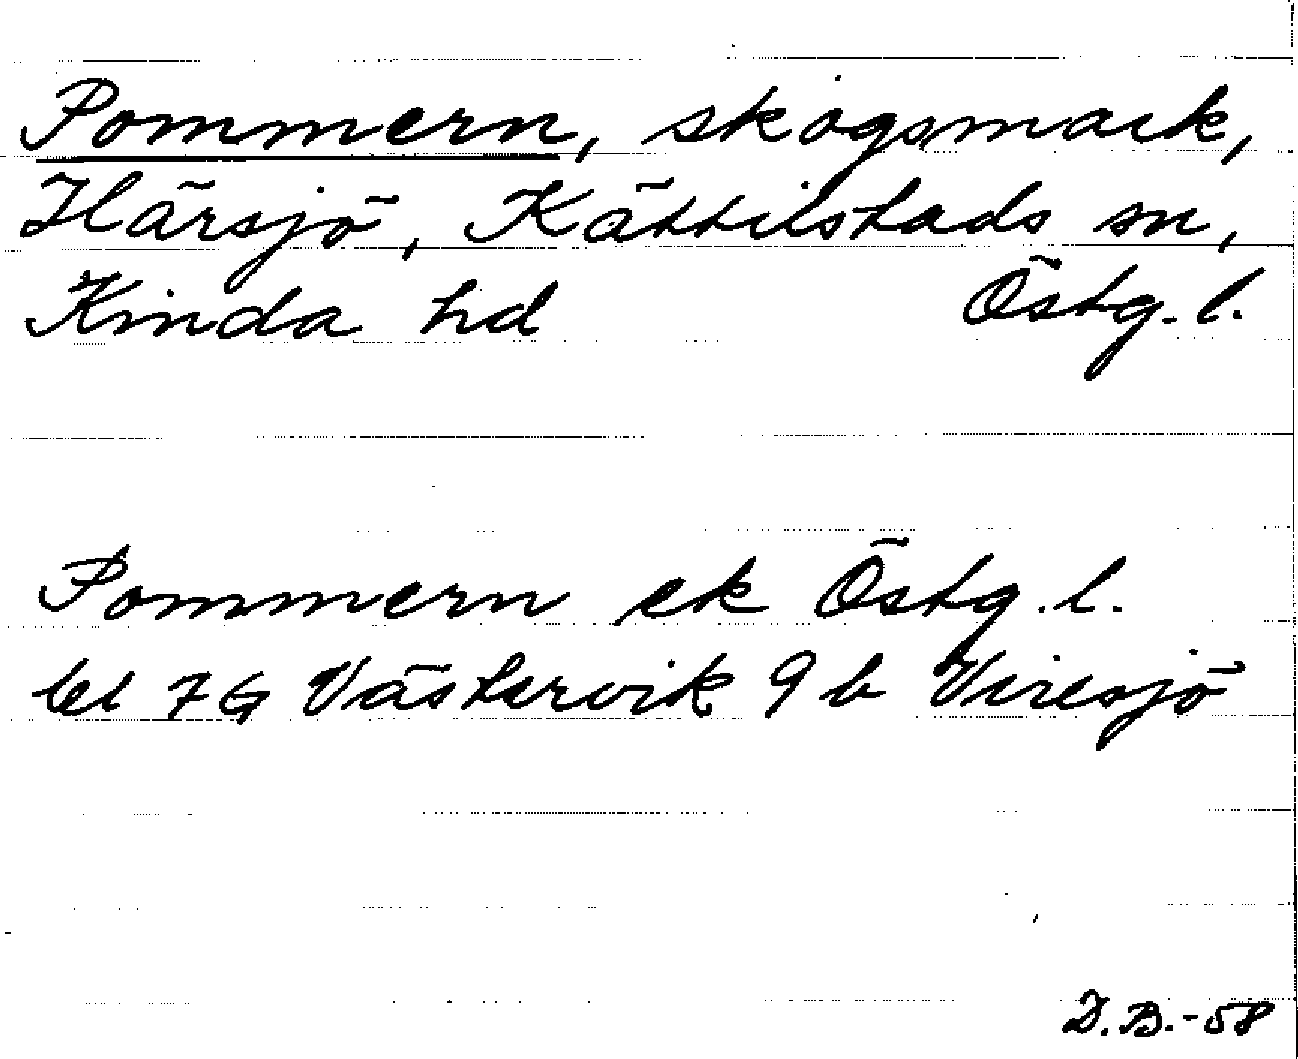 Pommern, skogsmark,
Härsjö, Kättilstads sn,
Kinda hd Östg. l.
Pommern ek Östg. l.
bl 7G Västervik 9 b Viresjö
D.B.-58